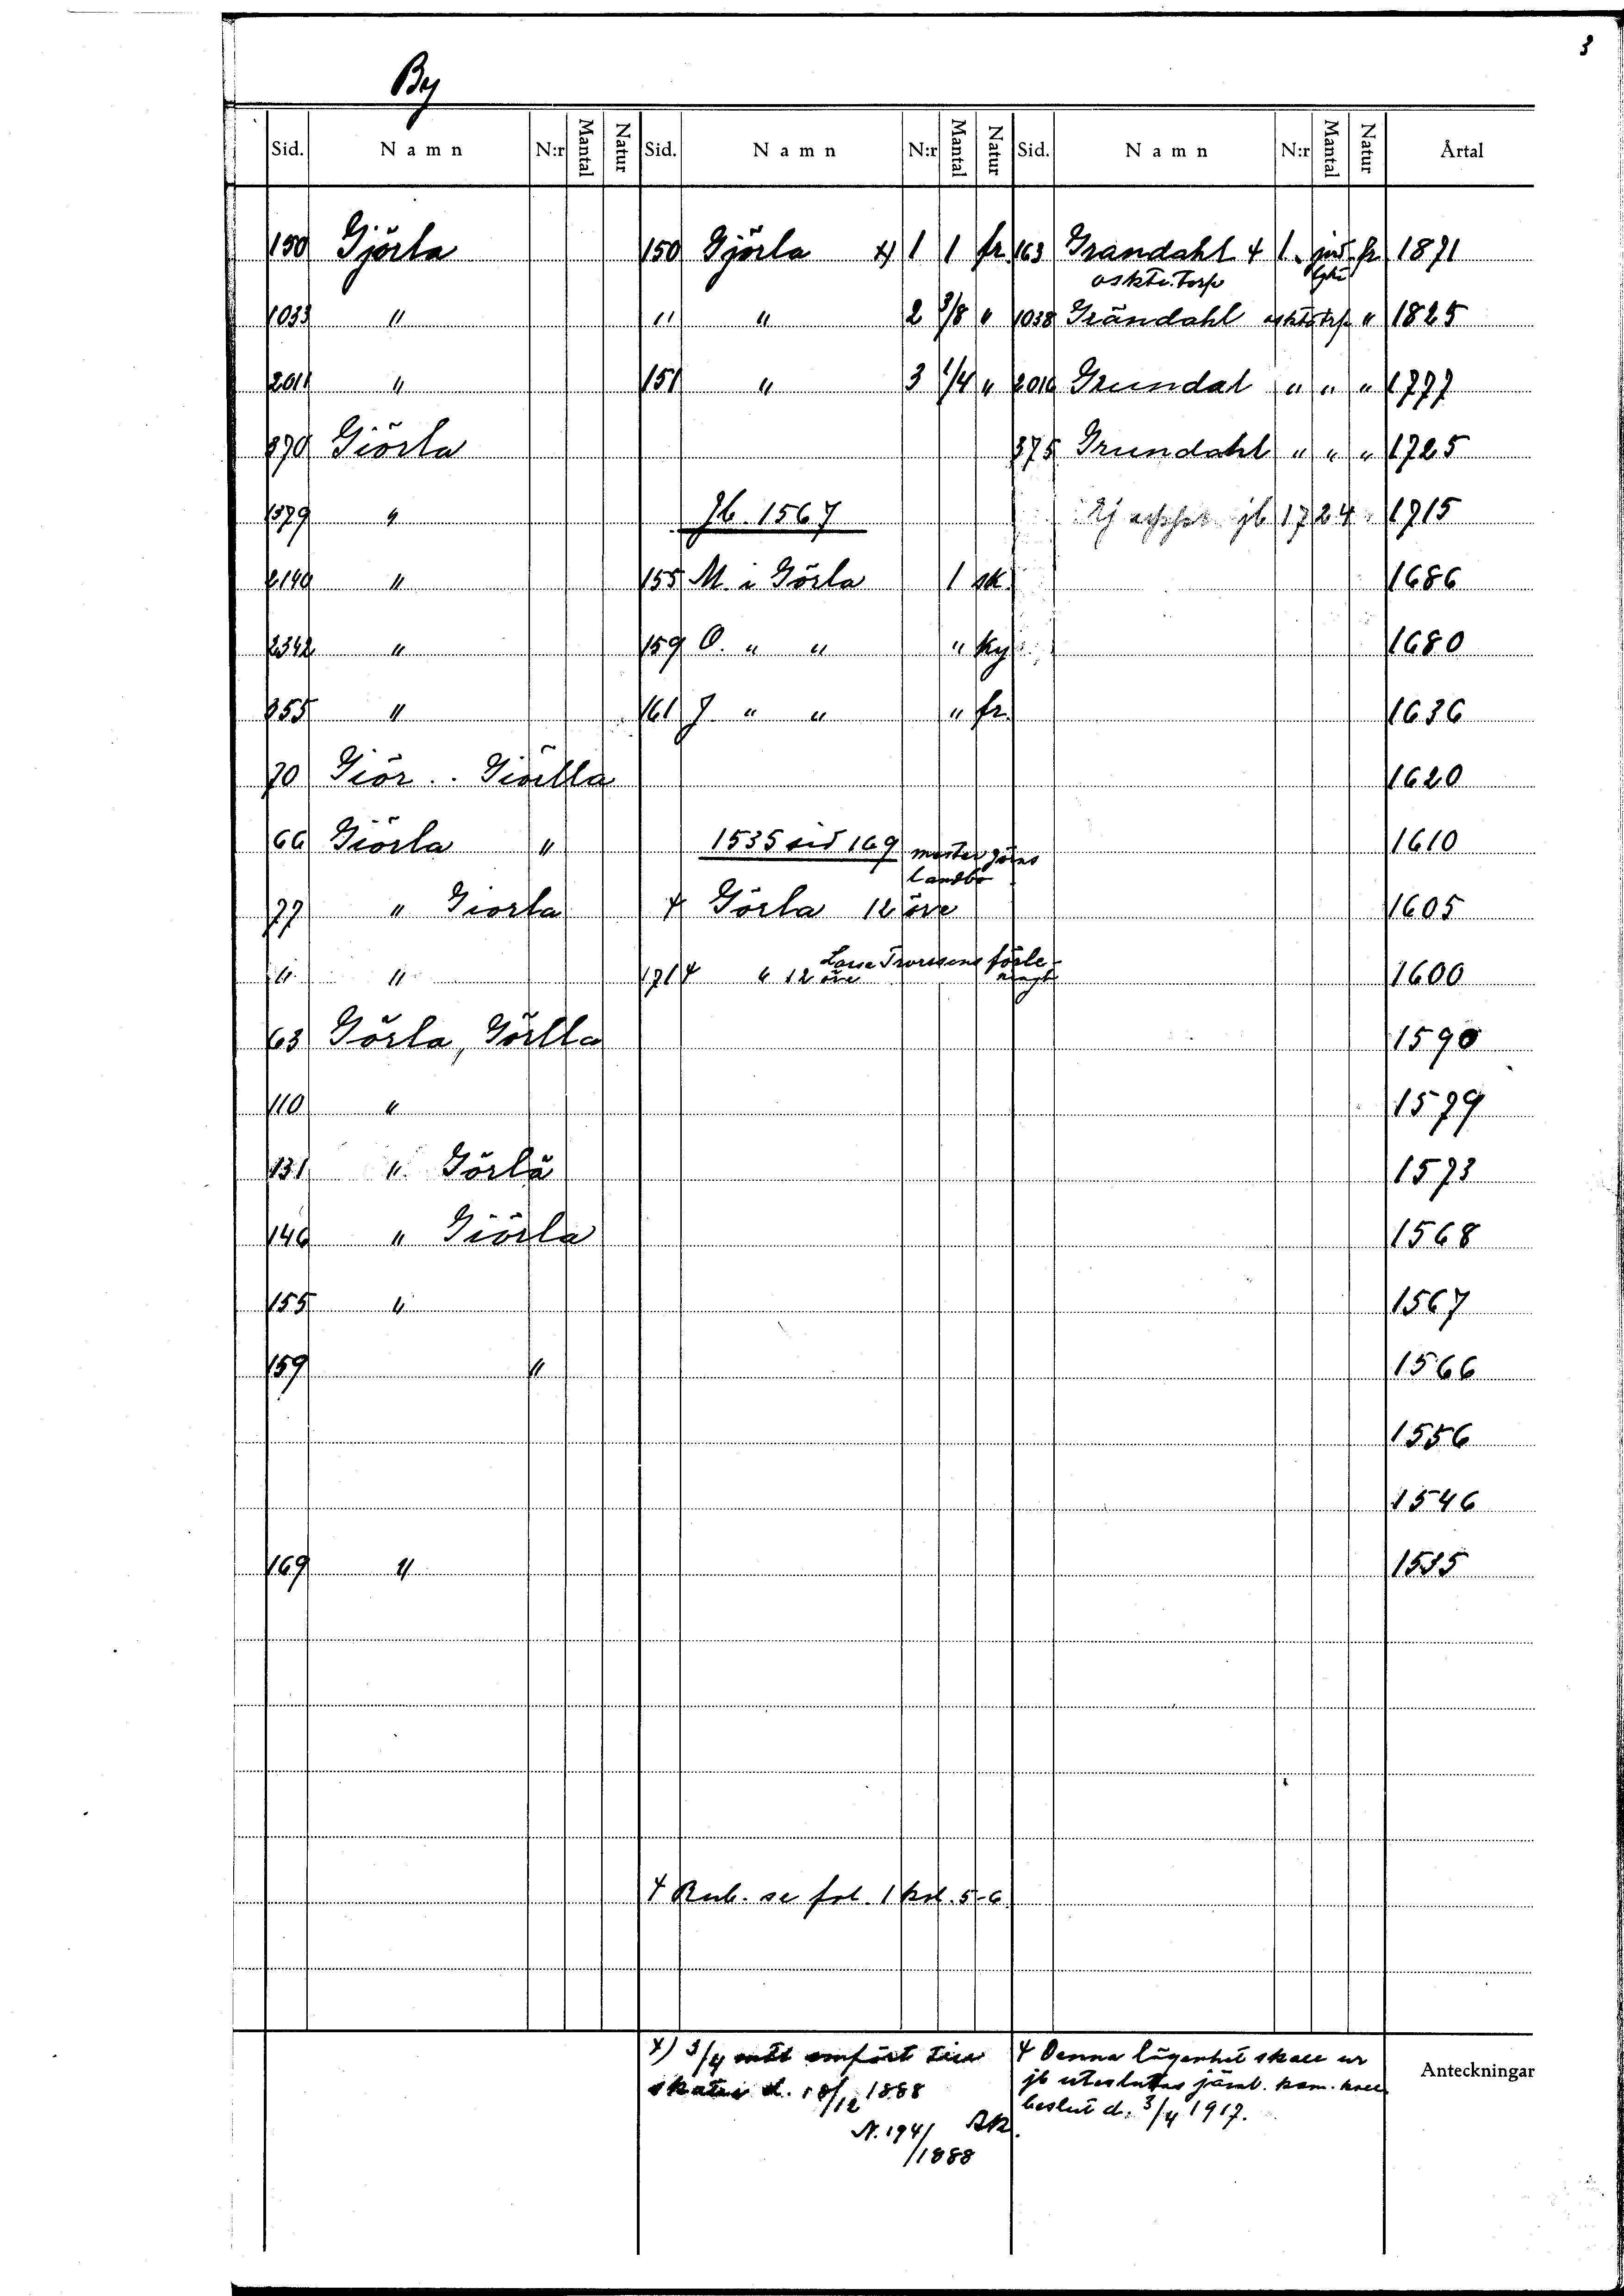 3
By
Sid. Namn N:r Mantal Natur Sid. Namn N:r Mantal Natur Sid. Namn N:r Mantal Natur Årtal
150 Gjörla 150 Gjörla 4) 1 1 fr. 163 Grandahl 4 1 fr 1871
oskti. torp
1033 " " " 2 3/8 " 1038 Grändahl " 1825
2011 " 151 " 3 1/4 " 2016 Grundal " " " 1777
370 Giörla 375 Grundahl " " " 1725
1379 " Jb. 1567 Ej jb 1724. 1715
2140 " 155 M. i Görla 1 sk. 1686
2342 " 159 O. " " " ky 1680
355 " 161 J " " " fr. 1636
70 Giör.. Giörlla 1620
66 Giörla " 1535 sid 169 mester Jöns 1610
landbo
77 " Giorla 4 Görla 12 öre 1605
Lasse Trorssens förle-
" " 171 4 " 12 öre ningh 1600
63 Görla, Görlla 1590
110 " 1579
131 " Görlä 1573
146 " Giörla 1568
155 " 1567
159 " 1566
1556
1546
169 " 1535
4 Rub. se fol. 1 kol. 5-6
4) 3/4 mtl omfört till
skatte d. 18/12 1888
N. 1941/1888
4 Denna lägenhet skall ur
jb uteslutas jäml. kam. koll.
beslut d. 3/4 1917.
Anteckningar